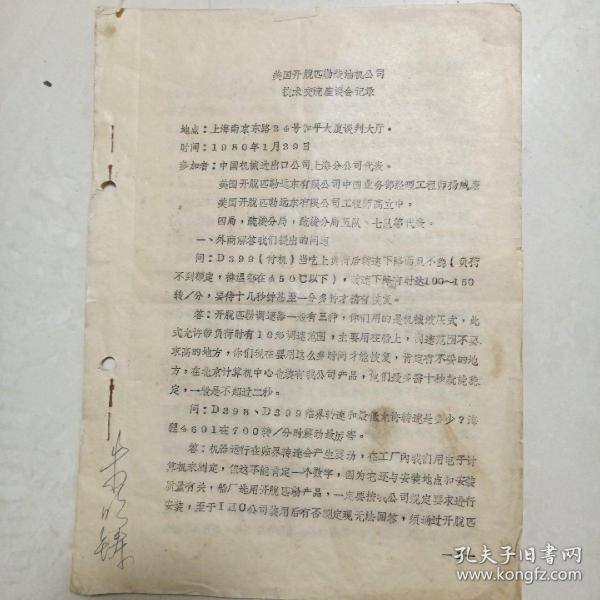 美国开脱匹勒柴油机公司
技术交流座谈会记录
地点：上海南京东路24号和平大厦谈判大厅。
时间：1980年1月29日
参加者：中国机械进出口公司上海分公司代表。
美国开脱匹勒远东有限公司中国业务部经理工程师杨威廉
美国开脱匹勒远东有限公司工程师高立中。
四局，疏浚分局，疏浚分局五队、七队等代表。
一、外商解答我们提出的问题
问：D399（付机）当吃上负荷后转速下降而且不稳（负荷
不到额定，排温都在450℃以下），转速下降有时达100—150
转/分，要待十几秒钟甚至一分多钟才稍有恢复。
答：开脱匹勒调速器一般有三种，你们用的是机械液压式，此
式允许带负荷时有10%调速范围，主要用在船上，调速范围不要
求高的地方，你们现在要用这么多时间才能恢复，肯定有不妥的地
方，在北京计算机中心也装有我公司产品，他们最多需十秒就能稳
定，一般是不超过二秒。
问：D398、D399临界转速和最低允许转速是多少？海
4601在700转/分时震动最厉害。
答：机器运行在临界转速会产生震动，在工厂内我们用电子计
算机来测定，但这不能肯定一个数字，因为它还与安装地点和安装
质量有关，船厂选用开脱匹勒产品，一定要按我公司规定要求进行
安装，至于IHC公司装用后有否测定现无法回答，须通过开脱匹
孔夫子旧书网
kongfz.com